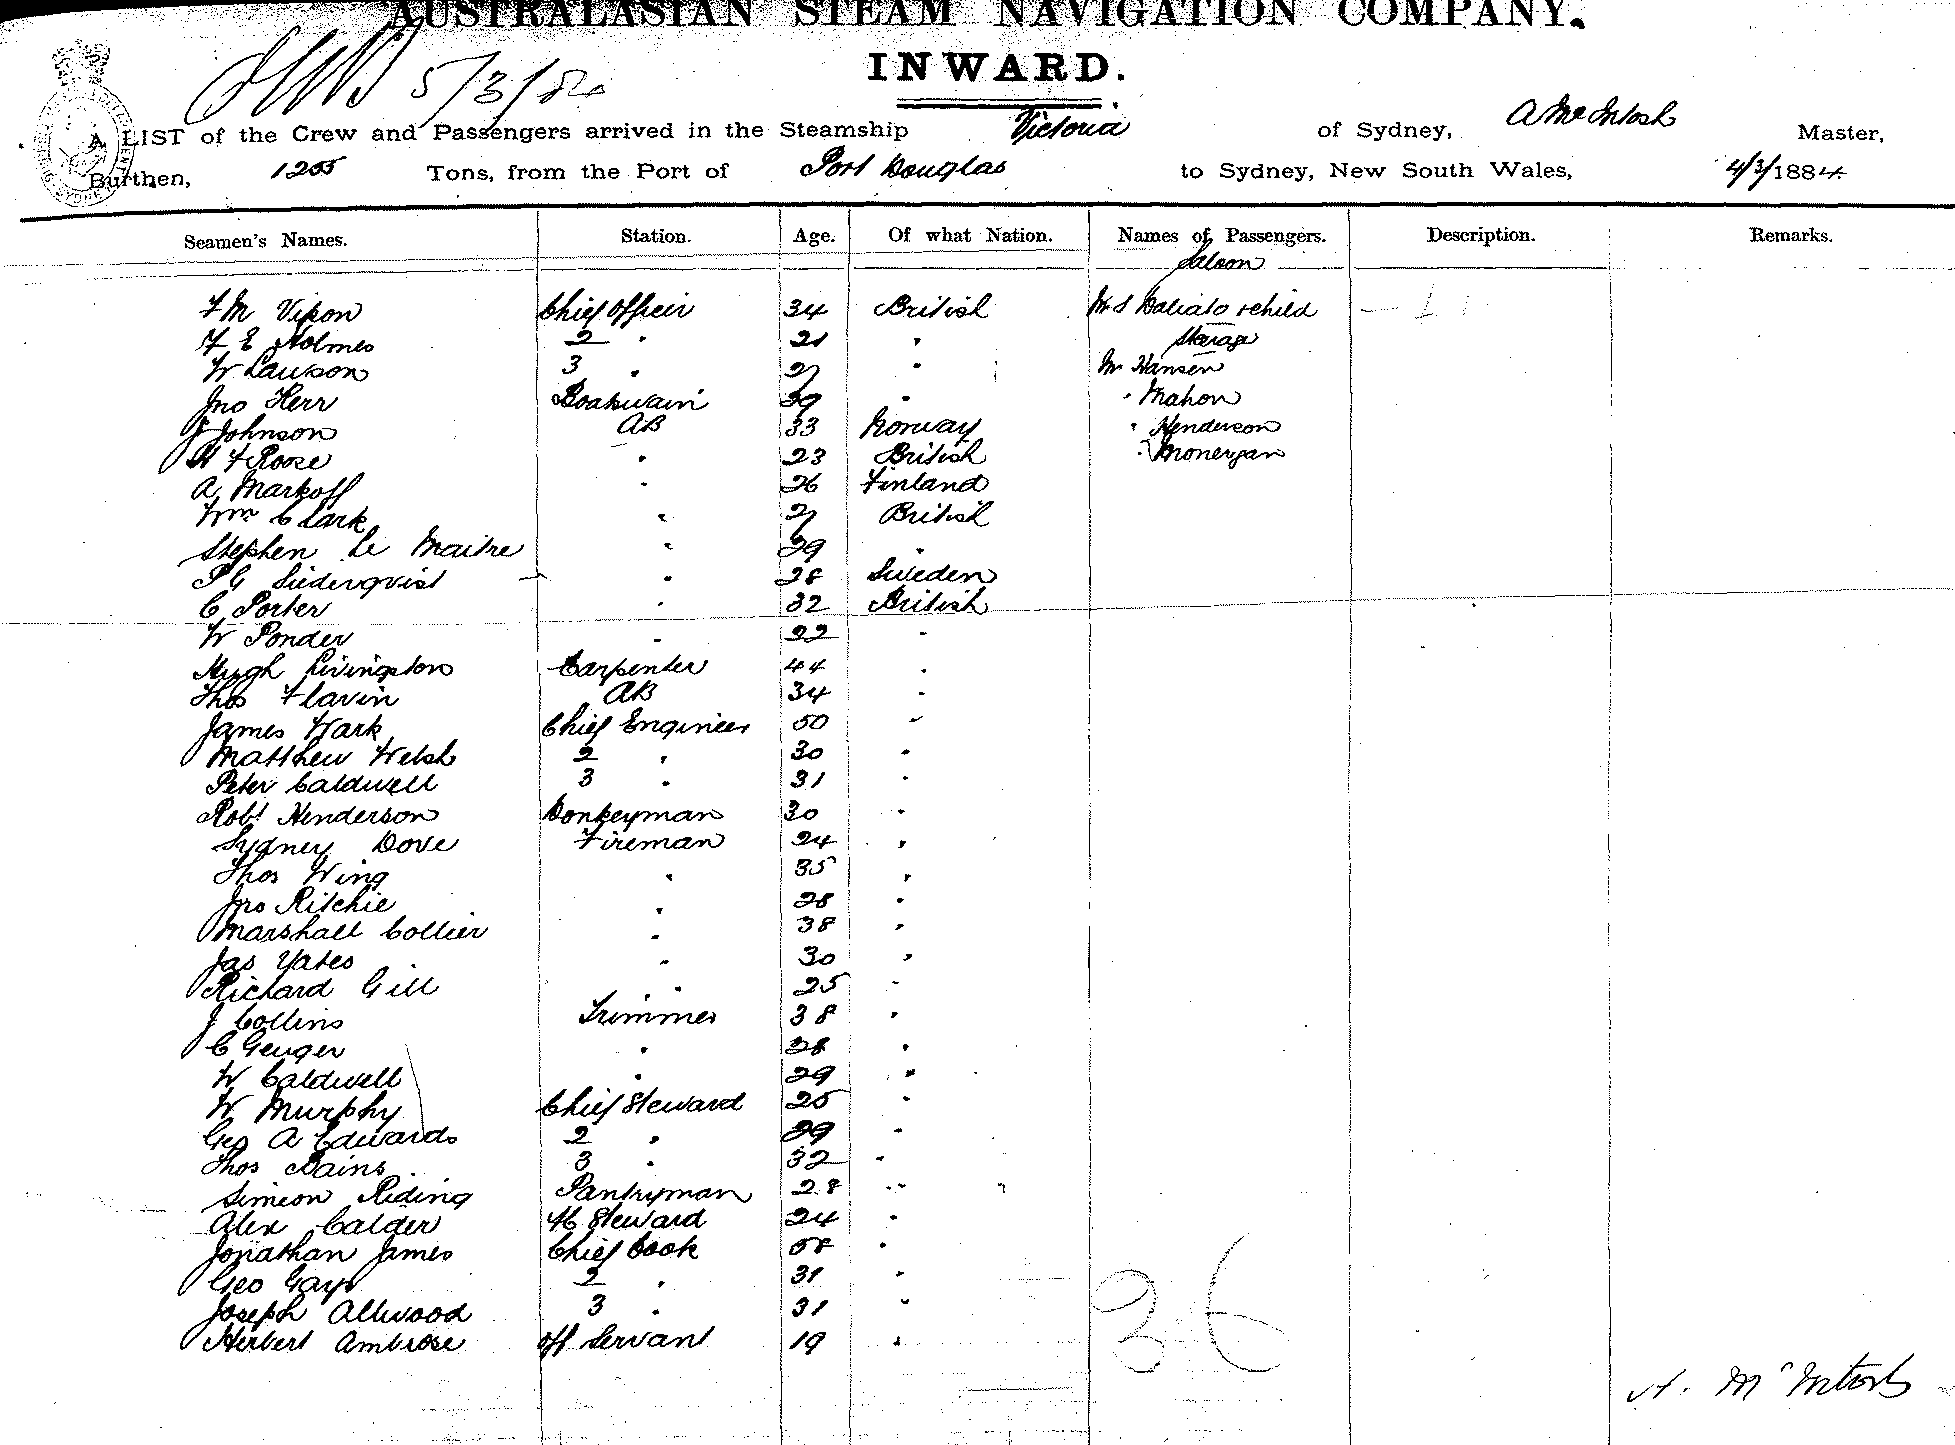 AUSTRALASIAN STEAM NAVIGATION COMPANY.
INWARD.
5/3/84
A LIST of the Crew and Passengers arrived in the Steamship Victoria of Sydney, A McIntosh Master,
Burthen, 1255 Tons, from the Port of Port Douglas to Sydney, New South Wales, 4/3/1884
Seamen's Names. Station. Age. Of what Nation. Names of Passengers. Description. Remarks.
Saloon
F M Vipon Chief Officer 34 British Mrs Baliato & child
F E Holmes 2 " 21 " Steerage
W Lawson 3 " 27 " Mr Hansen
Jno Herr Boatswain 39 " " Mahon
J Johnson AB 33 Norway " Henderson
H F Roose " 23 British "
A Markoff " 26 Finland
Wm Clark " 27 British
Stephen Le Maitre " 29 "
P G Suderqvist " 28 Sweden
C Porter " 32 British
W Ponder " 22 "
Hugh Livingston Carpenter 44 "
Thos Flavin AB 34 "
James Wark Chief Engineer 50 "
Matthew Welsh 2 " 30 "
Peter Caldwell 3 " 31 "
Robt Henderson Donkeyman 30 "
Sydney Dove Fireman 24 "
Thos Wing " 35 "
Jno Ritchie " 28 "
Marshall Collier " 38 "
Jas Yates " 30 "
Richard Gill " " 25 "
J Collins Trimmer 38 "
C Geuger " 28 "
W Caldwell " 29 "
W Murphy Chief Steward 25 "
Geo A Edwards 2 " 29 "
Thos Bains 3 " 32 "
Simeon Riding Pantryman 28 "
Alex Calder Steward 24 "
Jonathan James Chief Cook 58 "
Geo Gay 2 " 31 "
Joseph Allwood 3 " 31 "
Herbert Ambrose Off Servant 19 "
36
A. McIntosh